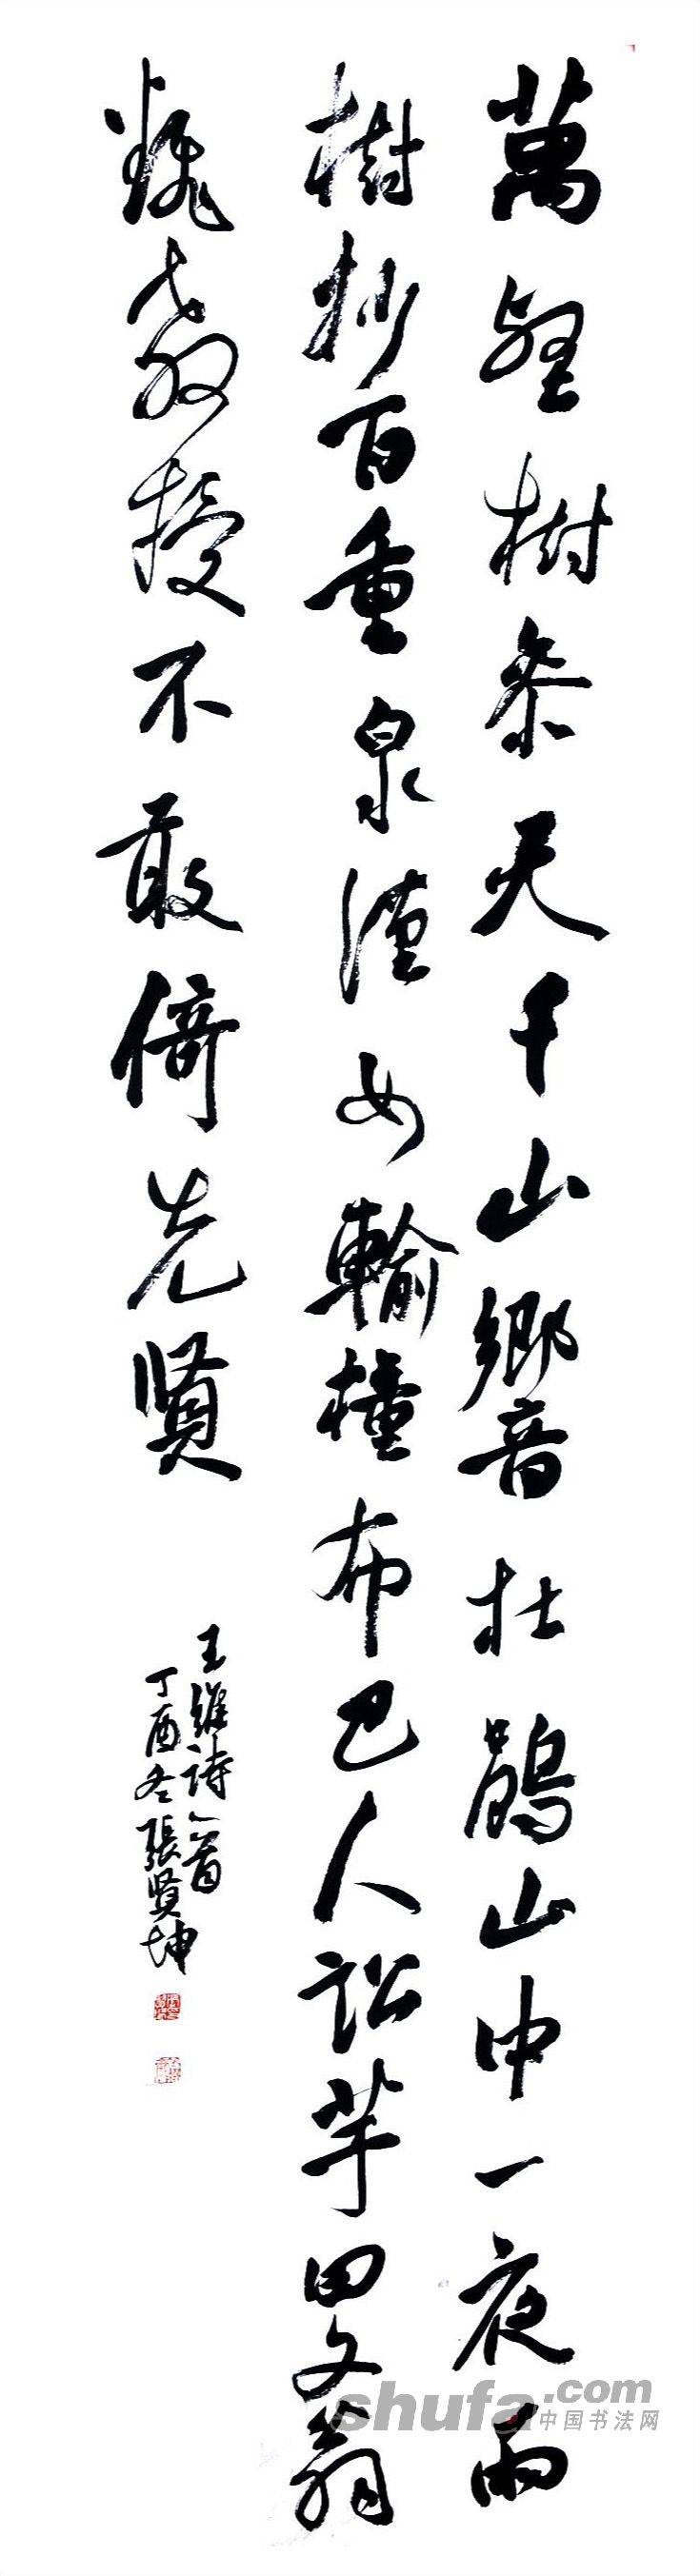 萬壑樹參天千山響杜鵑山中一夜雨
樹杪百重泉漢女輸橦布巴人訟芋田文翁
翻教授不敢倚先賢
王維詩一首
丁酉冬張賢坤
shufa.com
中国书法网